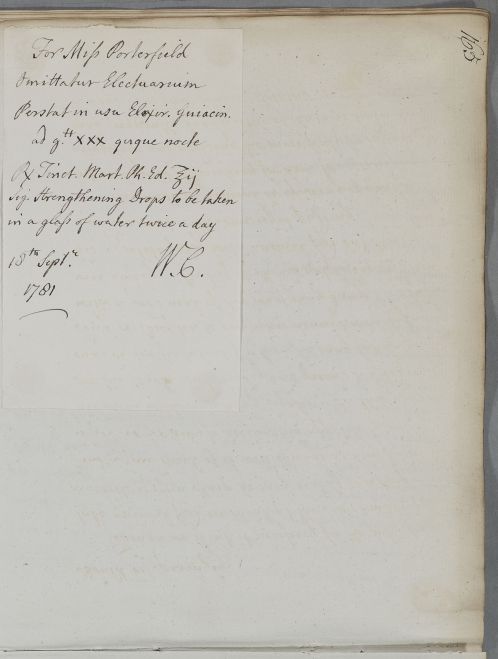 165
For Miſs Porterfield
Omittatur Electuarium
Perstat in usu Elixir. Guiacin.
ad g.tt xxx quque nocte
℞ Tinct. Mart. Ph. Ed. ℥ij
Sig. Strengthening Drops to be taken
in a glaſs of water twice a day
18th Septr. W.C.
1781